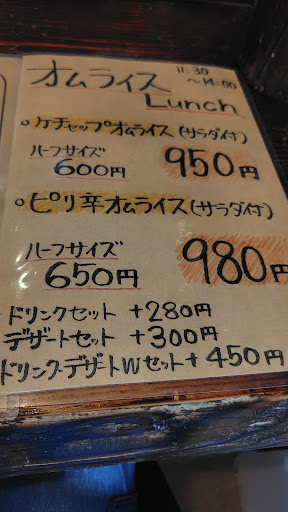 オムライス 11:30
～14:00
Lunch
・ケチャップオムライス(サラダ付)
ハーフサイズ 950円
600円
・ピリ辛オムライス(サラダ付)
ハーフサイズ 980円
650円
ドリンクセット +280円
デザートセット +300円
ドリンク・デザートWセット+450円